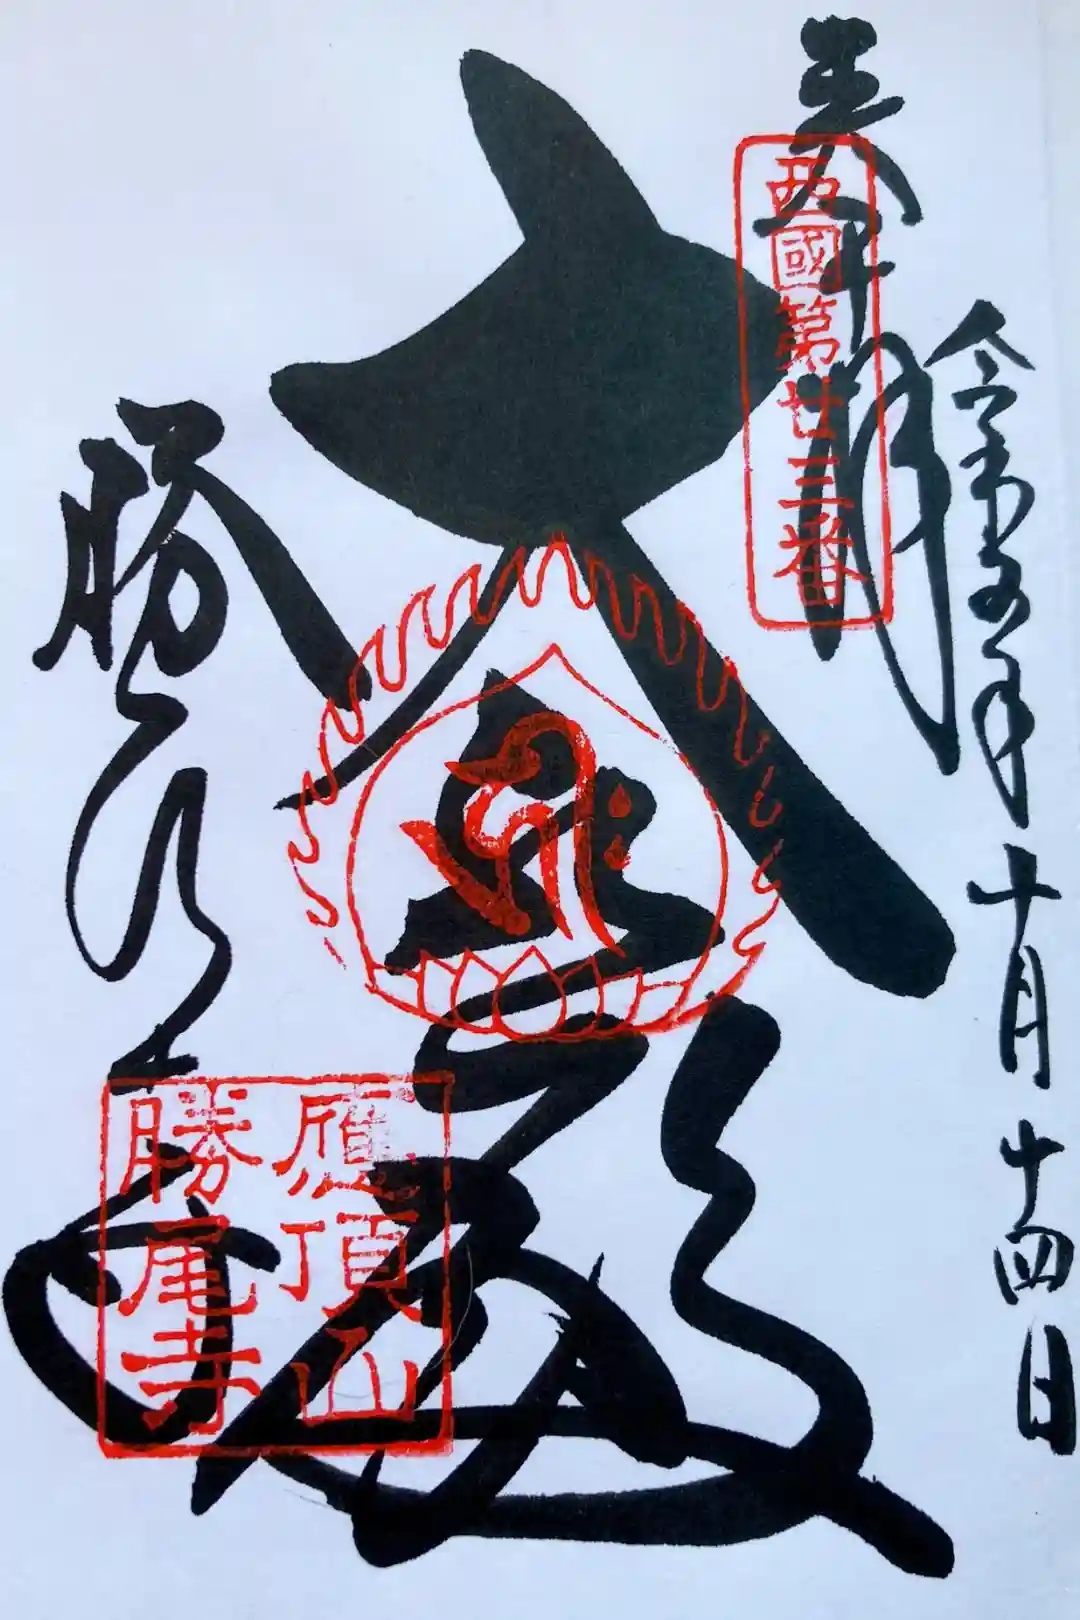 令和五年十月十四日
奉拝
西國第廿三番
大悲
勝尾寺
應頂山
勝尾寺